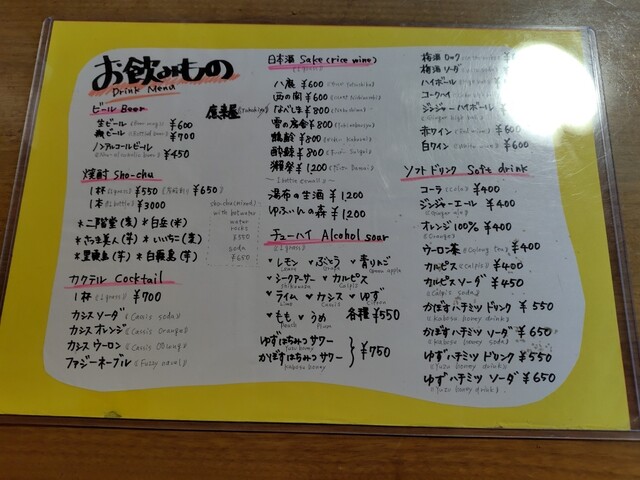 お飲みもの
Drink Menu
ビール Beer
生ビール ¥600
瓶ビール ¥700
ノンアルコールビール
¥450
焼酎 Sho-chu
1杯 ¥550 ¥650
1本 ¥3000
*二階堂(麦) *白岳(米)
*さつま美人(芋) *いいちこ(麦)
*黒霧島(芋) *白霧島(芋)
water
rocks
¥550
soda
¥650
カクテル Cocktail
1杯 (1glass) ¥700
カシスソーダ (Cassis soda)
カシスオレンジ (Cassis Orange)
カシスウーロン (Cassis Oolong)
ファジーネーブル (Fuzzy navel)
日本酒 Sake (rice wine)
八鹿 ¥600
西の関 ¥600
なべしま ¥800
雪の宿舎 ¥800
鶴齢 ¥800
酔鯨 ¥800
獺祭 ¥1200
湯布の生酒 ¥1,200
ゆふいんの森 ¥1,200
チューハイ Alcohol sour
レモン ぶどう 青りんご
Lemon Grape Green apple
シークァーサー カルピス
ライム カシス ゆず
Lime Cassis
もも うめ 各種 ¥550
Peach Plum
ゆずはちみつサワー
Yuzu honey
かぼすはちみつサワー
Kabosu honey
¥750
梅酒ロック
梅酒ソーダ
ハイボール
コークハイ
ジンジャーハイボール
赤ワイン
白ワイン
ソフトドリンク Soft drink
コーラ (Cola) ¥400
ジンジャーエール ¥400
(Ginger ale)
オレンジ100% ¥400
(Orange)
ウーロン茶 (Oolong tea) ¥400
カルピス (Calpis) ¥400
カルピスソーダ ¥450
(Calpis soda)
かぼすハチミツドリンク ¥550
(Kabosu honey drink)
かぼすハチミツソーダ ¥650
(Kabosu honey soda)
ゆずハチミツドリンク ¥550
(Yuzu honey drink)
ゆずハチミツソーダ ¥650
(Yuzu honey drink)